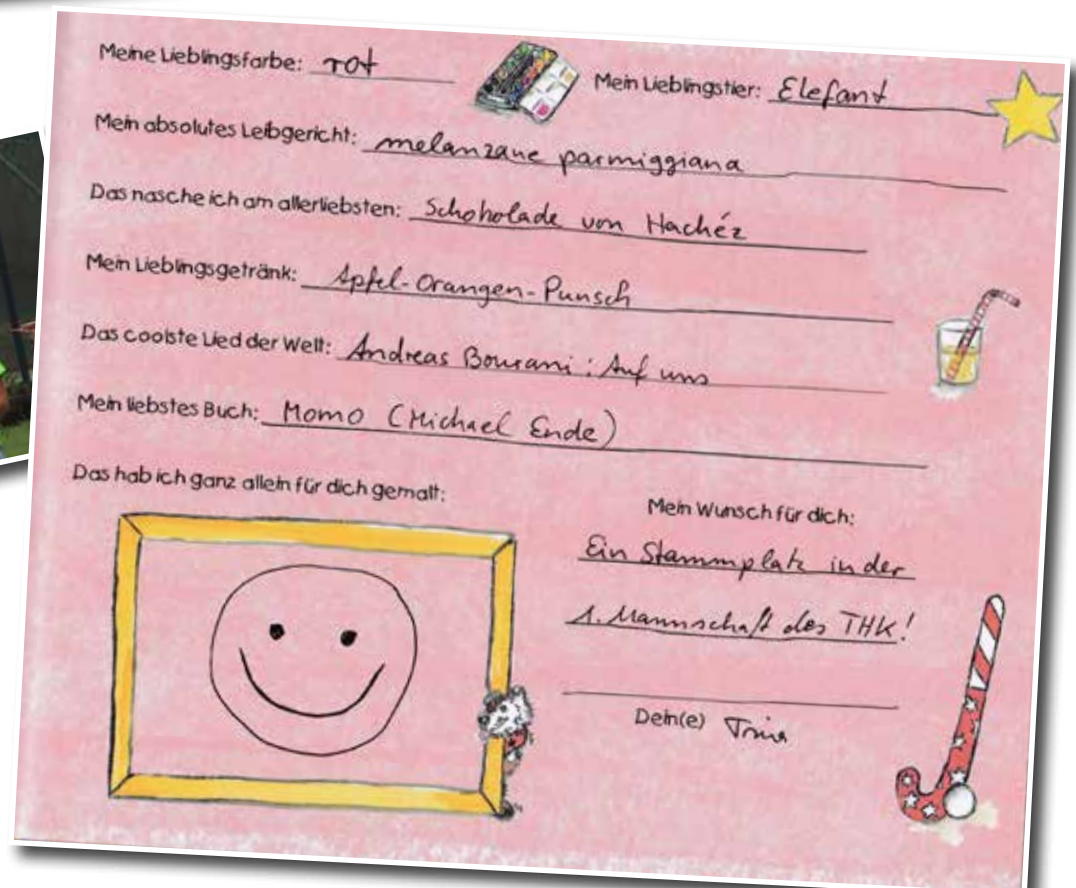 Meine Lieblingsfarbe: rot
Mein Lieblingstier: Elefant
Mein absolutes Leibgericht: melanzane parmiggiana
Das nasche ich am allerliebsten: Schokolade von Hachéz
Mein Lieblingsgetränk: Apfel-Orangen-Punsch
Das coolste Lied der Welt: Andreas Bourani: Auf uns
Mein liebstes Buch: Momo (Michael Ende)
Das hab ich ganz allein für dich gemalt:
Mein Wunsch für dich:
Ein Stammplatz in der
1. Mannschaft des THK!
Dein(e) Trina